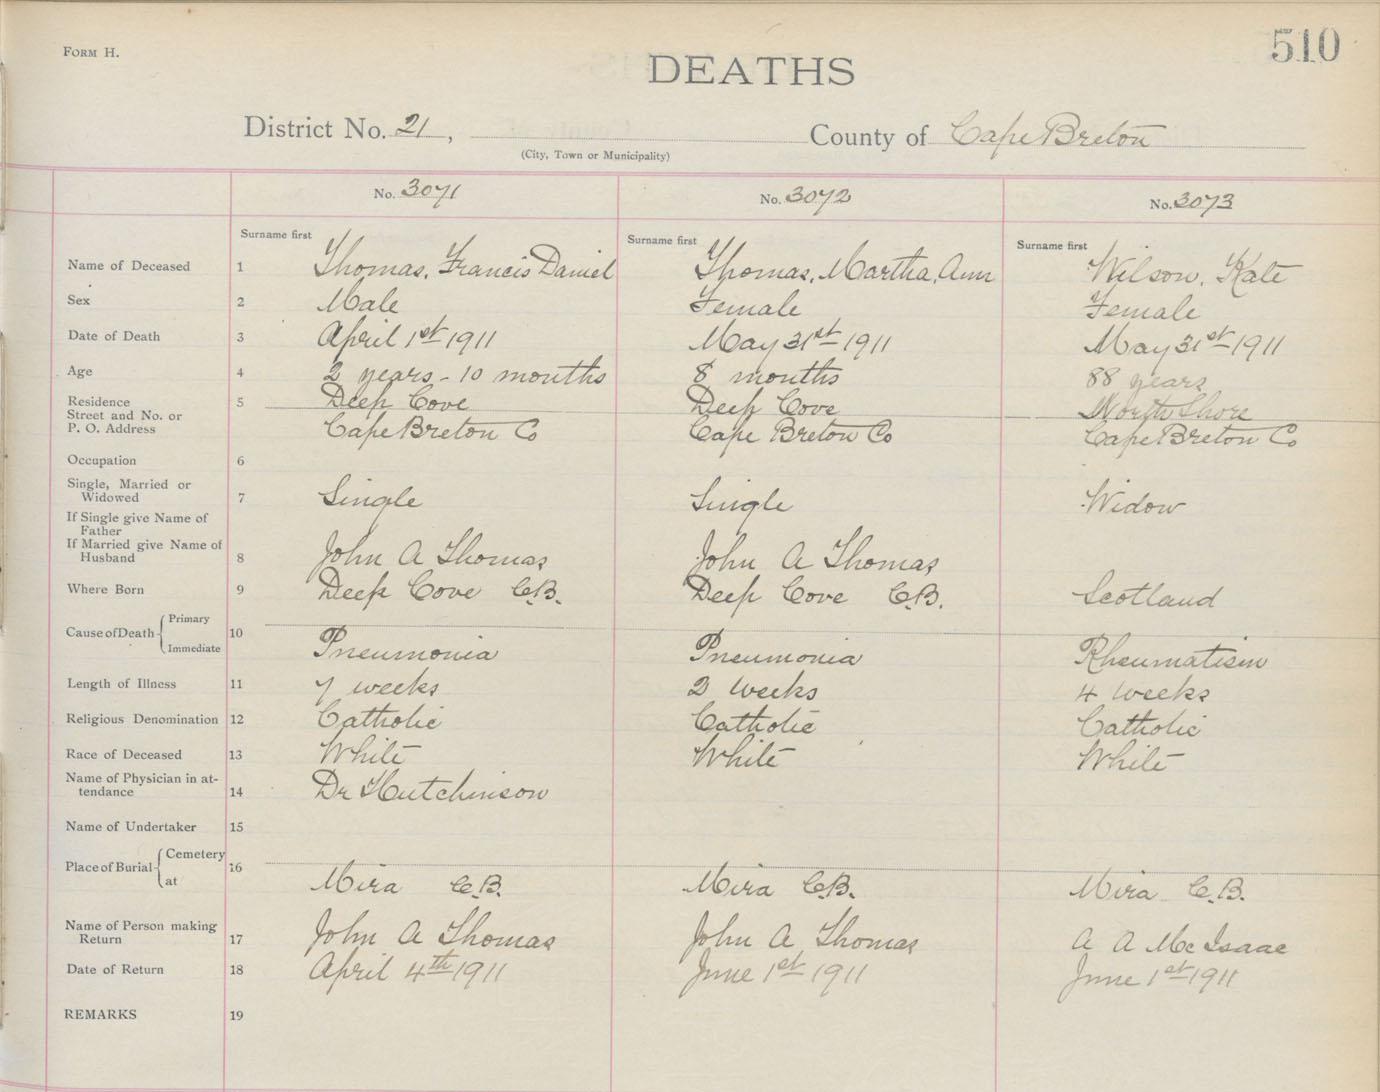 FORM H.
510
DEATHS
District No. 21, County of Cape Breton
(City, Town or Municipality)
No. 3071 No. 3072 No. 3073
Surname first Surname first Surname first
Name of Deceased 1 Thomas, Francis Daniel Thomas, Martha, Ann Wilson, Kate
Sex 2 Male Female Female
Date of Death 3 April 1st 1911 May 31st 1911 May 31st 1911
Age 4 2 years - 10 months 8 months 88 years
Residence 5 Deep Cove Deep Cove North Shore
Street and No. or
P. O. Address Cape Breton Co Cape Breton Co Cape Breton Co
Occupation 6
Single, Married or
Widowed 7 Single Single Widow
If Single give Name of
Father
If Married give Name of
Husband 8 John A Thomas John A Thomas
Where Born 9 Deep Cove C.B. Deep Cove C.B. Scotland
Cause of Death Primary
10
Immediate Pneumonia Pneumonia Rheumatism
Length of Illness 11 7 weeks 2 weeks 4 weeks
Religious Denomination 12 Catholic Catholic Catholic
Race of Deceased 13 White White White
Name of Physician in at-
tendance 14 Dr Hutchinson
Name of Undertaker 15
Place of Burial Cemetery 16
at Mira C.B. Mira C.B. Mira C.B.
Name of Person making
Return 17 John A Thomas John A Thomas A A McIsaac
Date of Return 18 April 4th 1911 June 1st 1911 June 1st 1911
REMARKS 19